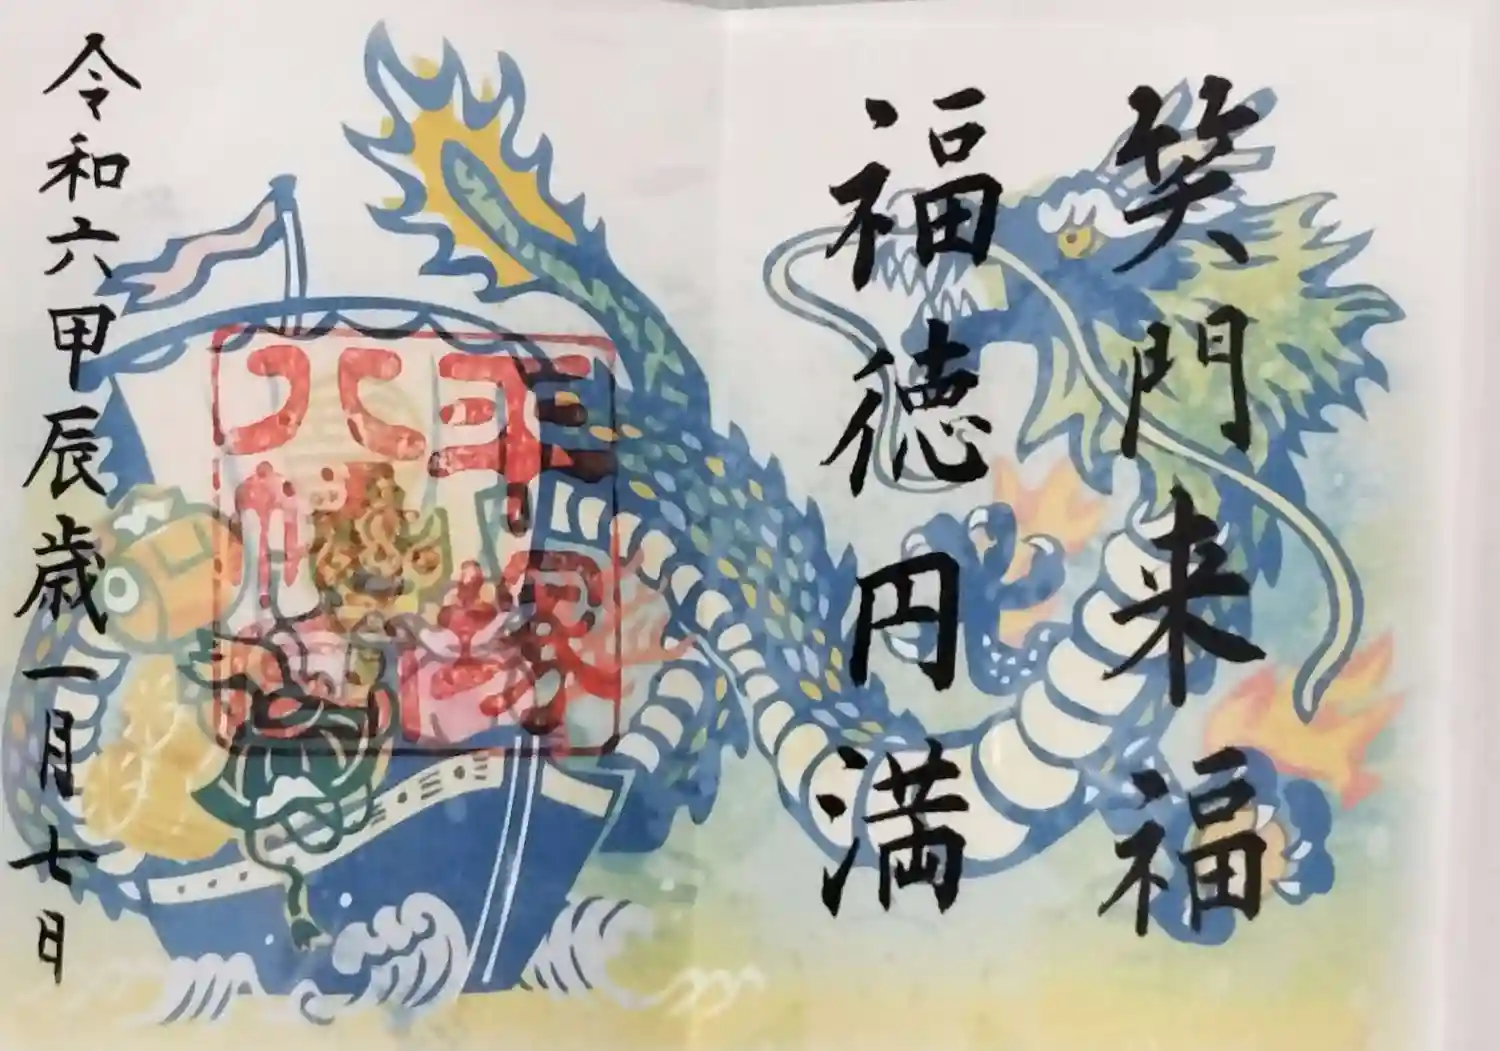 笑門来福
福徳円満
令和六甲辰歳一月七日